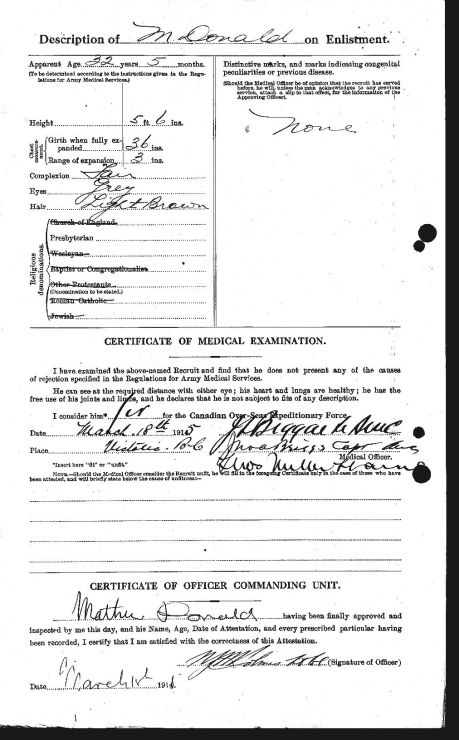 Description of M Donald on Enlistment.
Apparent Age 32 years 5 months.
(To be determined according to the instructions given in the Regulations for Army Medical Services.)
Height 5 ft. 6 ins.
Chest measurement.
Girth when fully expanded 36 ins.
Range of expansion 3 ins.
Complexion Fair
Eyes Grey
Hair Light Brown
Religious denominations.
Church of England
Presbyterian
Wesleyan
Baptist or Congregationalist
Other Protestants
(Denomination to be stated.)
Roman Catholic
Jewish
Distinctive marks, and marks indicating congenital
peculiarities or previous disease.
(Should the Medical Officer be of opinion that the recruit has served
before, he will, unless the man acknowledges to any previous
service, attach a slip to that effect, for the information of the
Approving Officer).
None
CERTIFICATE OF MEDICAL EXAMINATION.
I have examined the above-named Recruit and find that he does not present any of the causes
of rejection specified in the Regulations for Army Medical Services.
He can see at the required distance with either eye; his heart and lungs are healthy; he has the
free use of his joints and limbs, and he declares that he is not subject to fits of any description.
I consider him* fit for the Canadian Over-Seas Expeditionary Force.
Date March 18th 1915
Place Victoria B.C.
Medical Officer.
*Insert here "fit" or "unfit."
NOTE.—Should the Medical Officer consider the Recruit unfit, he will fill in the foregoing Certificate only in the case of those who have
been attested, and will briefly state below the cause of unfitness:—
CERTIFICATE OF OFFICER COMMANDING UNIT.
Donald having been finally approved and
inspected by me this day, and his Name, Age, Date of Attestation, and every prescribed particular having
been recorded, I certify that I am satisfied with the correctness of this Attestation.
(Signature of Officer)
Date March 191